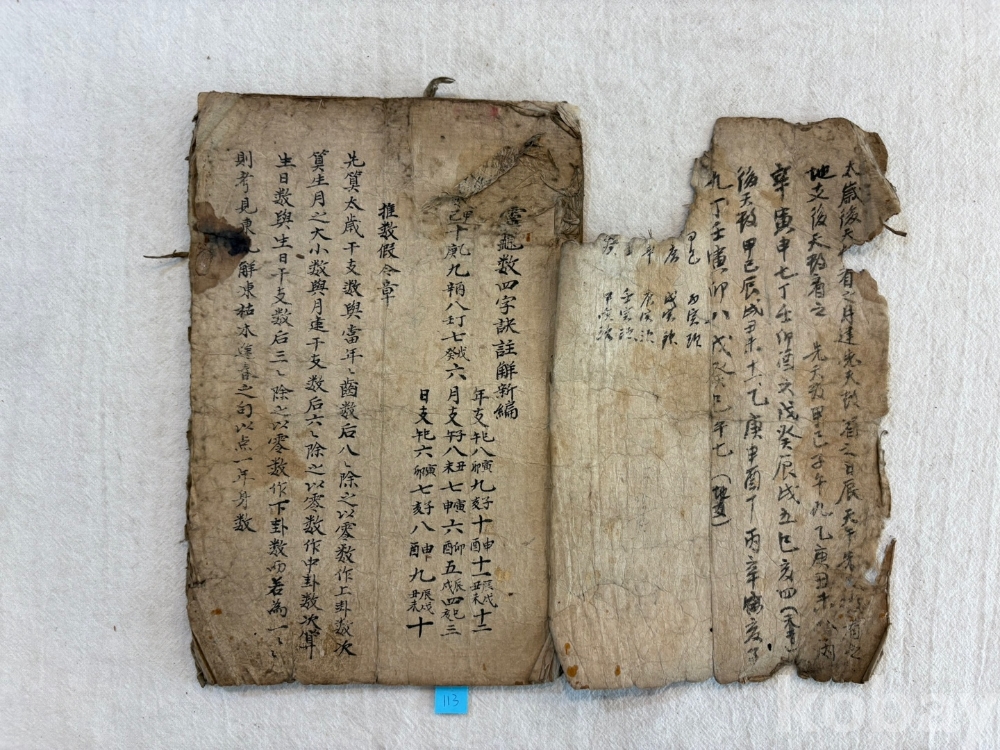 太歲後天數有之月建先天數有之日辰天干
地支後天數有之 先天數甲己子午九乙庚丑未八丙
辛寅申七丁壬卯酉六戊癸辰戌五巳亥四(天干)
後天數甲己辰戌丑未十一乙庚申酉十丙辛亥子
九丁壬寅卯八戊癸巳午七(地支)
甲己 丙寅頭
庚 戊寅頭
辛 庚寅頭
壬 壬寅頭
癸 甲寅頭
靈龜數四字訣註解新編
年支巳午八寅卯九子亥十申酉十一辰戌丑未十二
甲己十乙庚九丙辛八丁壬七戊癸六月支子午八丑未七寅申六卯酉五辰戌四巳亥三
日支巳午六寅卯七子亥八申酉九辰戌丑未十
推數假令章
先筭太歲干支數與當年々酋數后八々除之以零數作上卦數次
筭生月之大小數與月建干支數后六々除之以零數作中卦數次筭
生日數與生日干支數后三々除之以零數作下卦數而若為一々々
則考見東風解凍枯木逢春之句以点一年身數
113
kobay